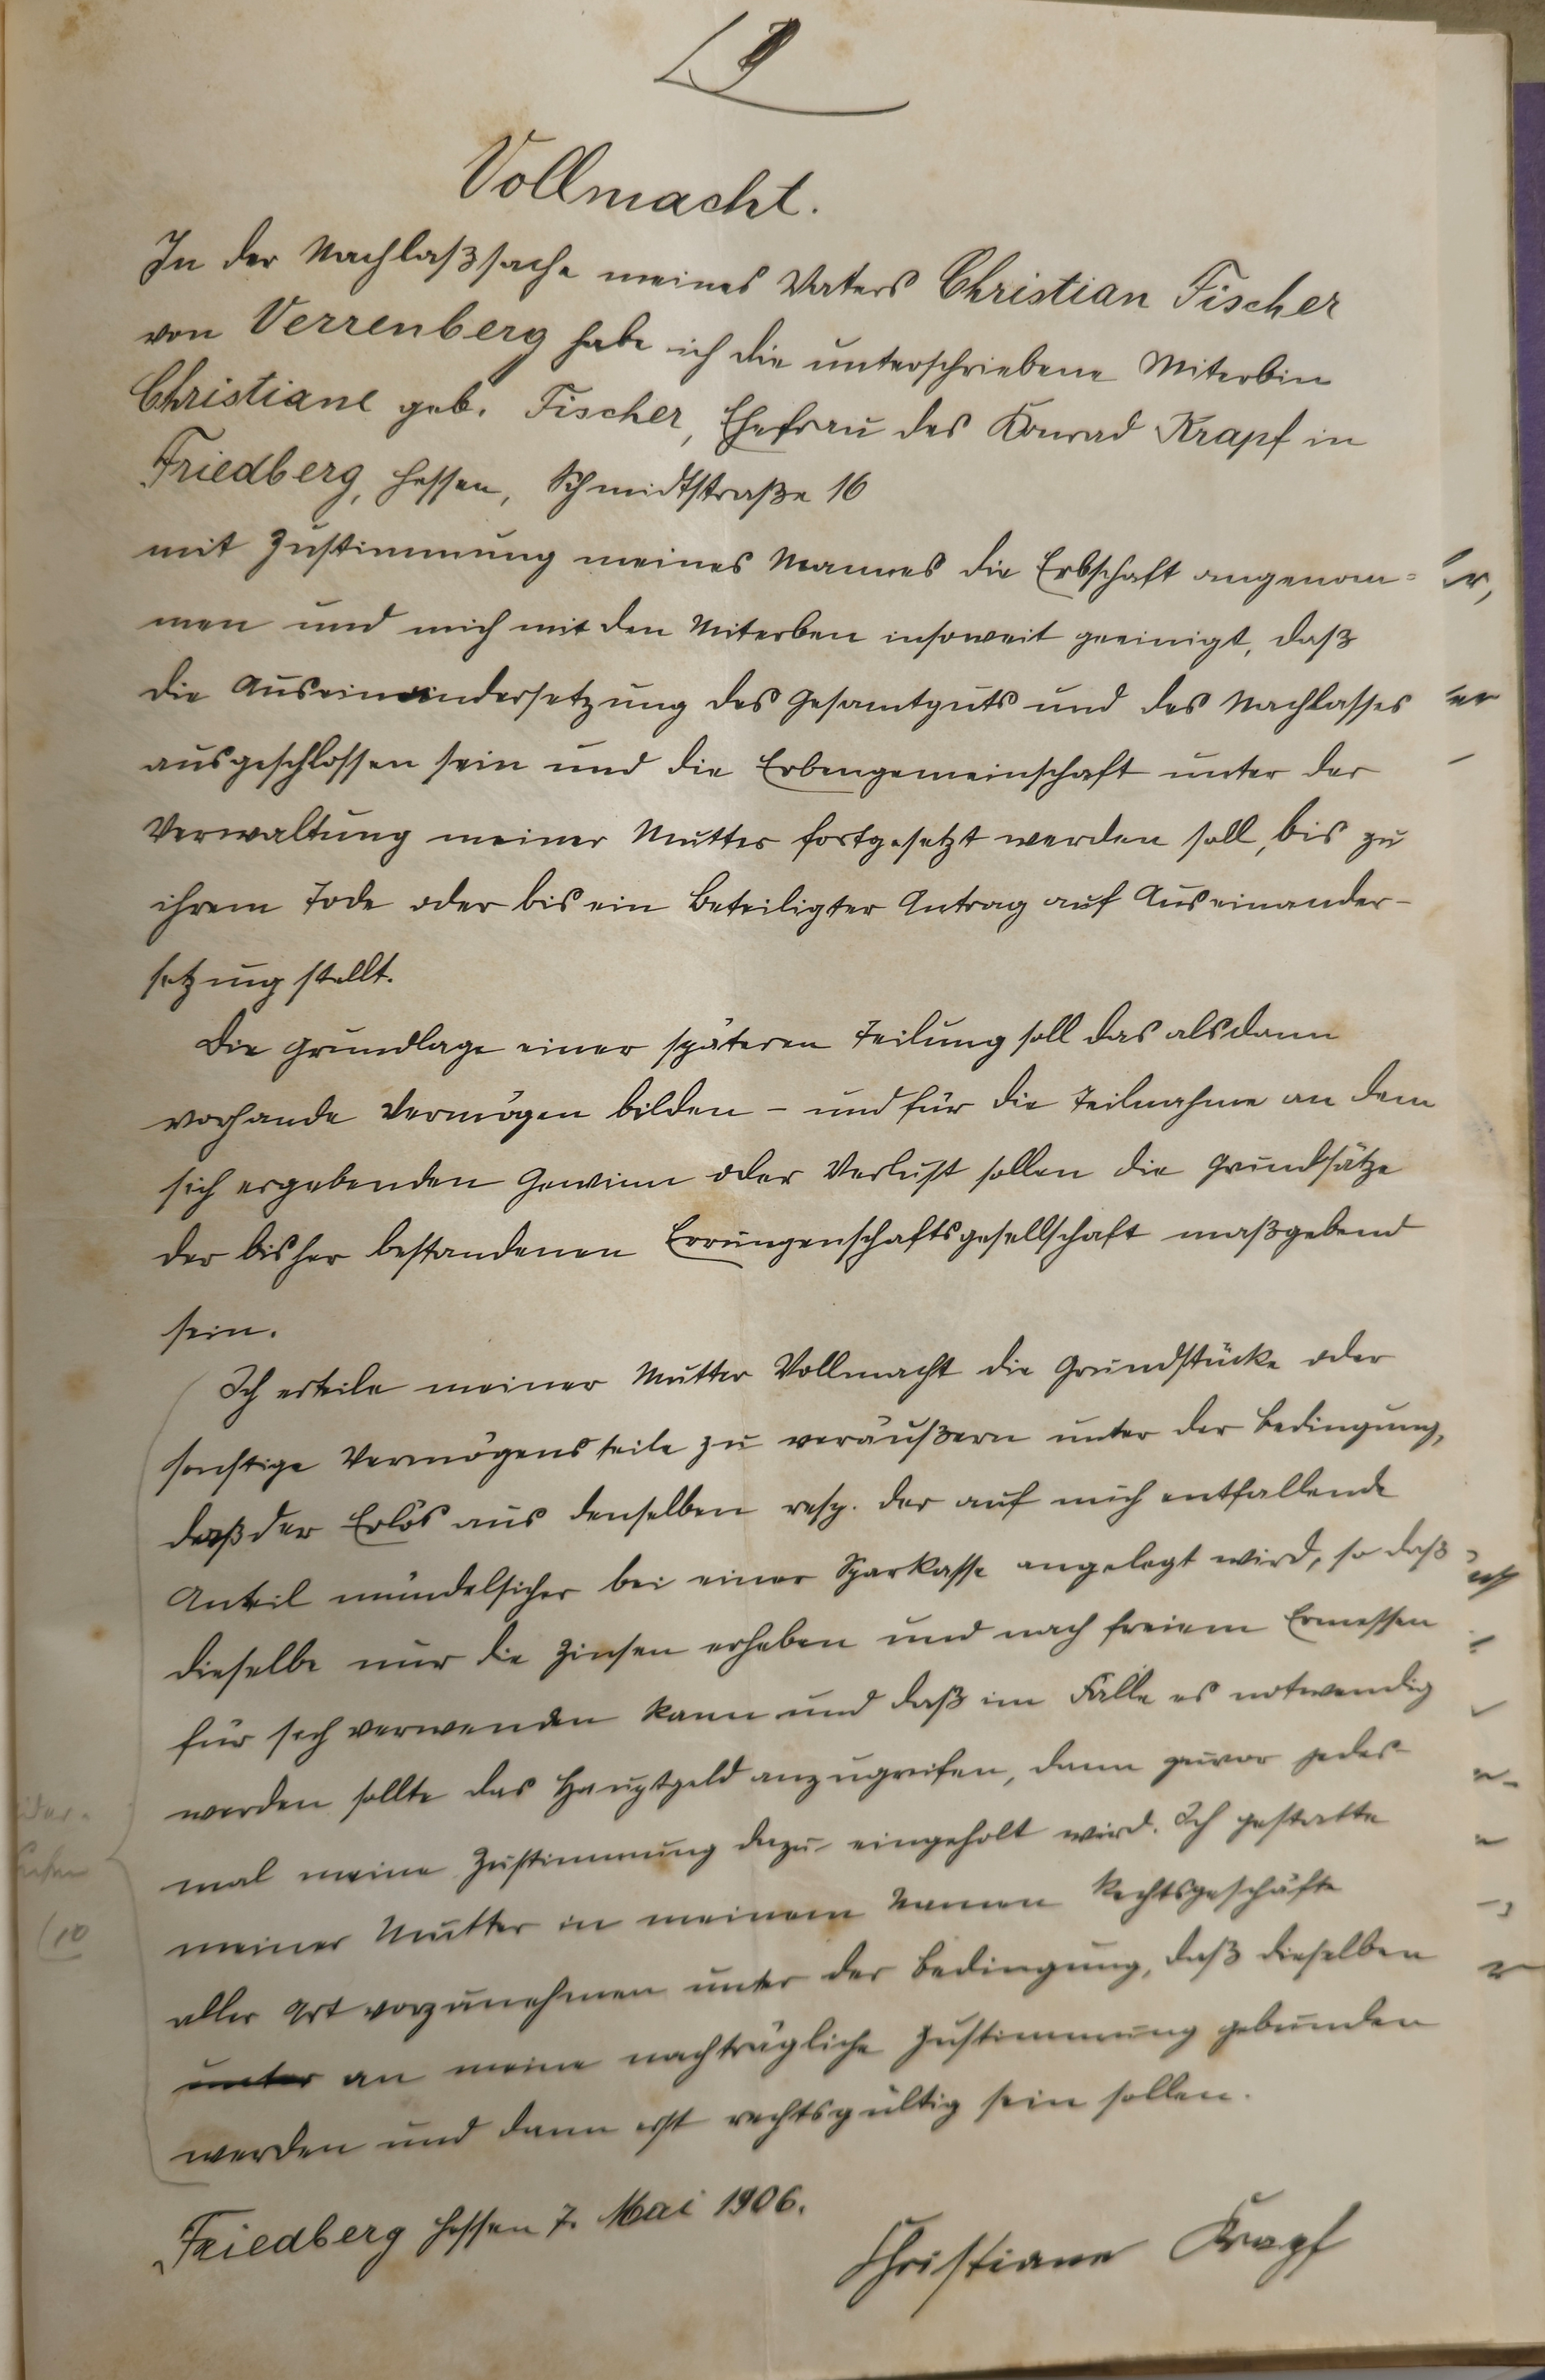 Vollmacht.
In der Nachlaßsache meines Vaters Christian Fischer
von Verrenberg habe ich die unterschriebene Miterbin
Christiane geb. Fischer, Ehefrau des Konrad Krapf in
Friedberg, Hessen, Schmidtstraße 16
mit Zustimmung meines Mannes die Erbschaft angenom=
men und mich mit den Miterben insoweit geeinigt, daß
die Auseinandersetzung des Gesamtguts und des Nachlasses
ausgeschlossen sein und die Erbengemeinschaft unter der
Verwaltung meiner Mutter fortgesetzt werden soll, bis zu
ihrem Tode oder bis ein Beteiligter Antrag auf Auseinander-
setzung stellt.
Die Grundlage einer späteren Teilung soll das alsdann
vorhande Vermögen bilden - und für die Teilnahme an dem
sich ergebenden Gewinn oder Verlust sollen die Grundsätze
der bisher bestandenen Errungenschaftsgesellschaft maßgebend
sein.
Ich erteile meiner Mutter Vollmacht die Grundstücke oder
sonstige Vermögensteile zu veräußern unter der Bedingung,
daß der Erlös aus denselben resp. der auf mich entfallende
Anteil mündelsicher bei einer Sparkasse angelegt wird, so daß
dieselbe nur die Zinsen erheben und nach freiem Ermessen
für sich verwenden kann und daß im Falle es notwendig
werden sollte das Hauptgeld anzugreifen, dann zuvor jedes-
mal meine Zustimmung dazu eingeholt wird. Ich gestatte
meiner Mutter in meinem Namen Rechtsgeschäfte
aller Art vorzunehmen unter der Bedingung, daß dieselben
unter an meine nachträgliche Zustimmung gebunden
werden und dann erst rechtsgültig sein sollen.
Friedberg Hessen 7. Mai 1906.
Christiane Krapf